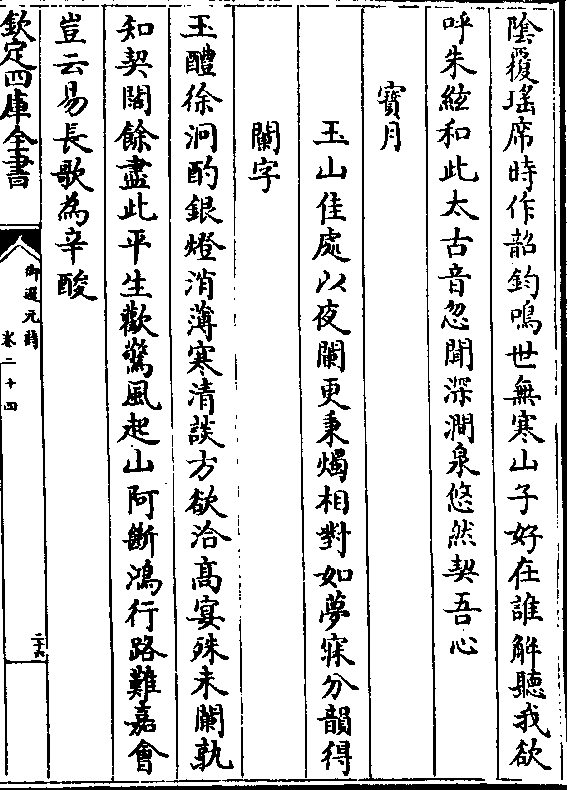 陰覆瑤席時作韶鈞鳴世無寒山子好在誰解聽我欲
呼朱絃和此太古音忽聞深澗泉悠然契吾心
寶月
玉山佳處以夜闌更秉燭相對如夢寐分韻得
闌字
玉醴徐洞酌銀燈消薄寒清談方欲洽高宴殊未闌孰
知契闊餘盡此平生歡驚風起山阿斷鴻行路難嘉會
豈云易長歌為辛酸
欽定四庫全書
御選元詩
卷二十四
二十六